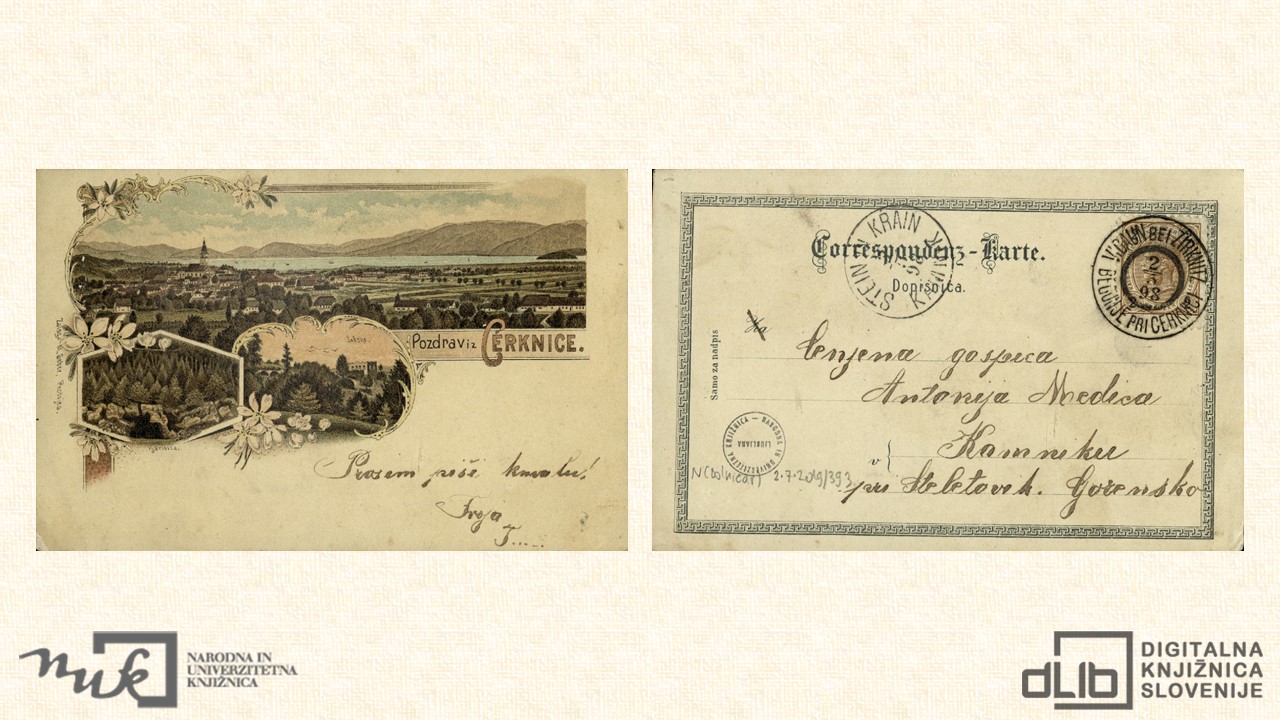 Pozdrav iz CERKNICE.
Prosem piši kmalu!
Tvoja
T.....
Correspondenz-Karte.
Dopisnica.
STEIN KRAIN
KAMNIK
V. GAUN BEI ZIRKNITZ
2
98
BEGUNJE PRI CERKNICI
Samo za nadpis
Na
Cenjena gospica
Antonija Medica
v { Kamniku
pri Steletovih. Gorensko
NARODNA IN UNIVERZITETNA KNJIŽNICA
LJUBLJANA
2.7.2019/393
nuk
NARODNA IN
UNIVERZITETNA
KNJIŽNICA
dLib
DIGITALNA
KNJIŽNICA
SLOVENIJE